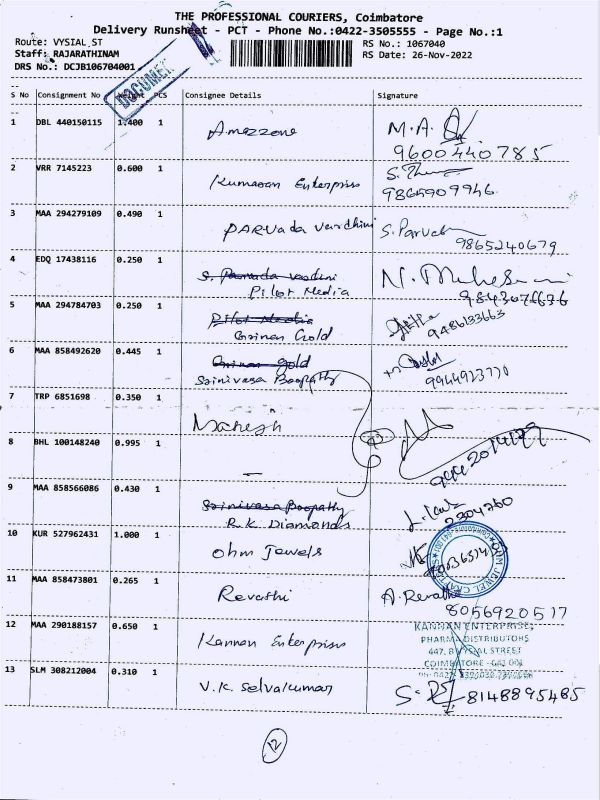 THE PROFESSIONAL COURIERS, Coimbatore
Delivery Runsheet - PCT - Phone No.:0422-3505555 - Page No.:1
Route: VYSIAL ST
RS No.: 1067040
Staff: RAJARATHINAM
RS Date: 26-Nov-2022
DRS No.: DCJB106704001
DOCUMENT
S No Consignment No Weight PCS Consignee Details Signature
1 DBL 440150115 1.400 1 Amezzone M.A.
9600440785
2 VRR 7145223 0.600 1 Kumaran Enterpriss
9865909946
3 MAA 294279109 0.490 1 PARVada vardhini S. Parvath
9865240679
4 EDQ 17438116 0.250 1 S. Parvada vardini
Pilot Media
5 MAA 294784703 0.250 1 Pilot Media
Grinan Gold 9486133663
6 MAA 858492620 0.445 1 Grinan gold
Srinivasa Boopathy 9944923770
7 TRP 6851698 0.350 1 Mahesh
8 BHL 100148240 0.995 1 —
9 MAA 858566086 0.430 1 Srinivasa Boopathy
R.K. Diamonds 2304760
10 KUR 527962431 1.000 1 Ohm Jewels
11 MAA 858473801 0.265 1 Revathi A. Revathi
8056920517
12 MAA 290188157 0.650 1 Kannan Enterpriss
KANNAN ENTERPRISES
PHARMA DISTRIBUTORS
447, B VYSIAL STREET
COIMBATORE - 641 001
13 SLM 308212004 0.310 1 V.K. Selvakumar 8148895485
12